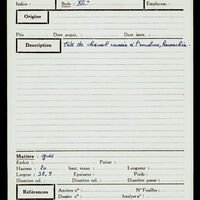 Indice : Style : XIIe Emplacem. :
Origine
Prix : Date acquis. : Date inser. :
Description Tête de cheval cassée à l'encolure,
Matière : grès
Enduit : Patine :
Hauteur : 20 haut. tenon : Longueur :
Largeur : 38,5 Epaisseur : Poids :
Diamètre col. : Diamètre panse :
Références Anciens n° : N° Feuilles :
Dossier n° : Analyse n° :